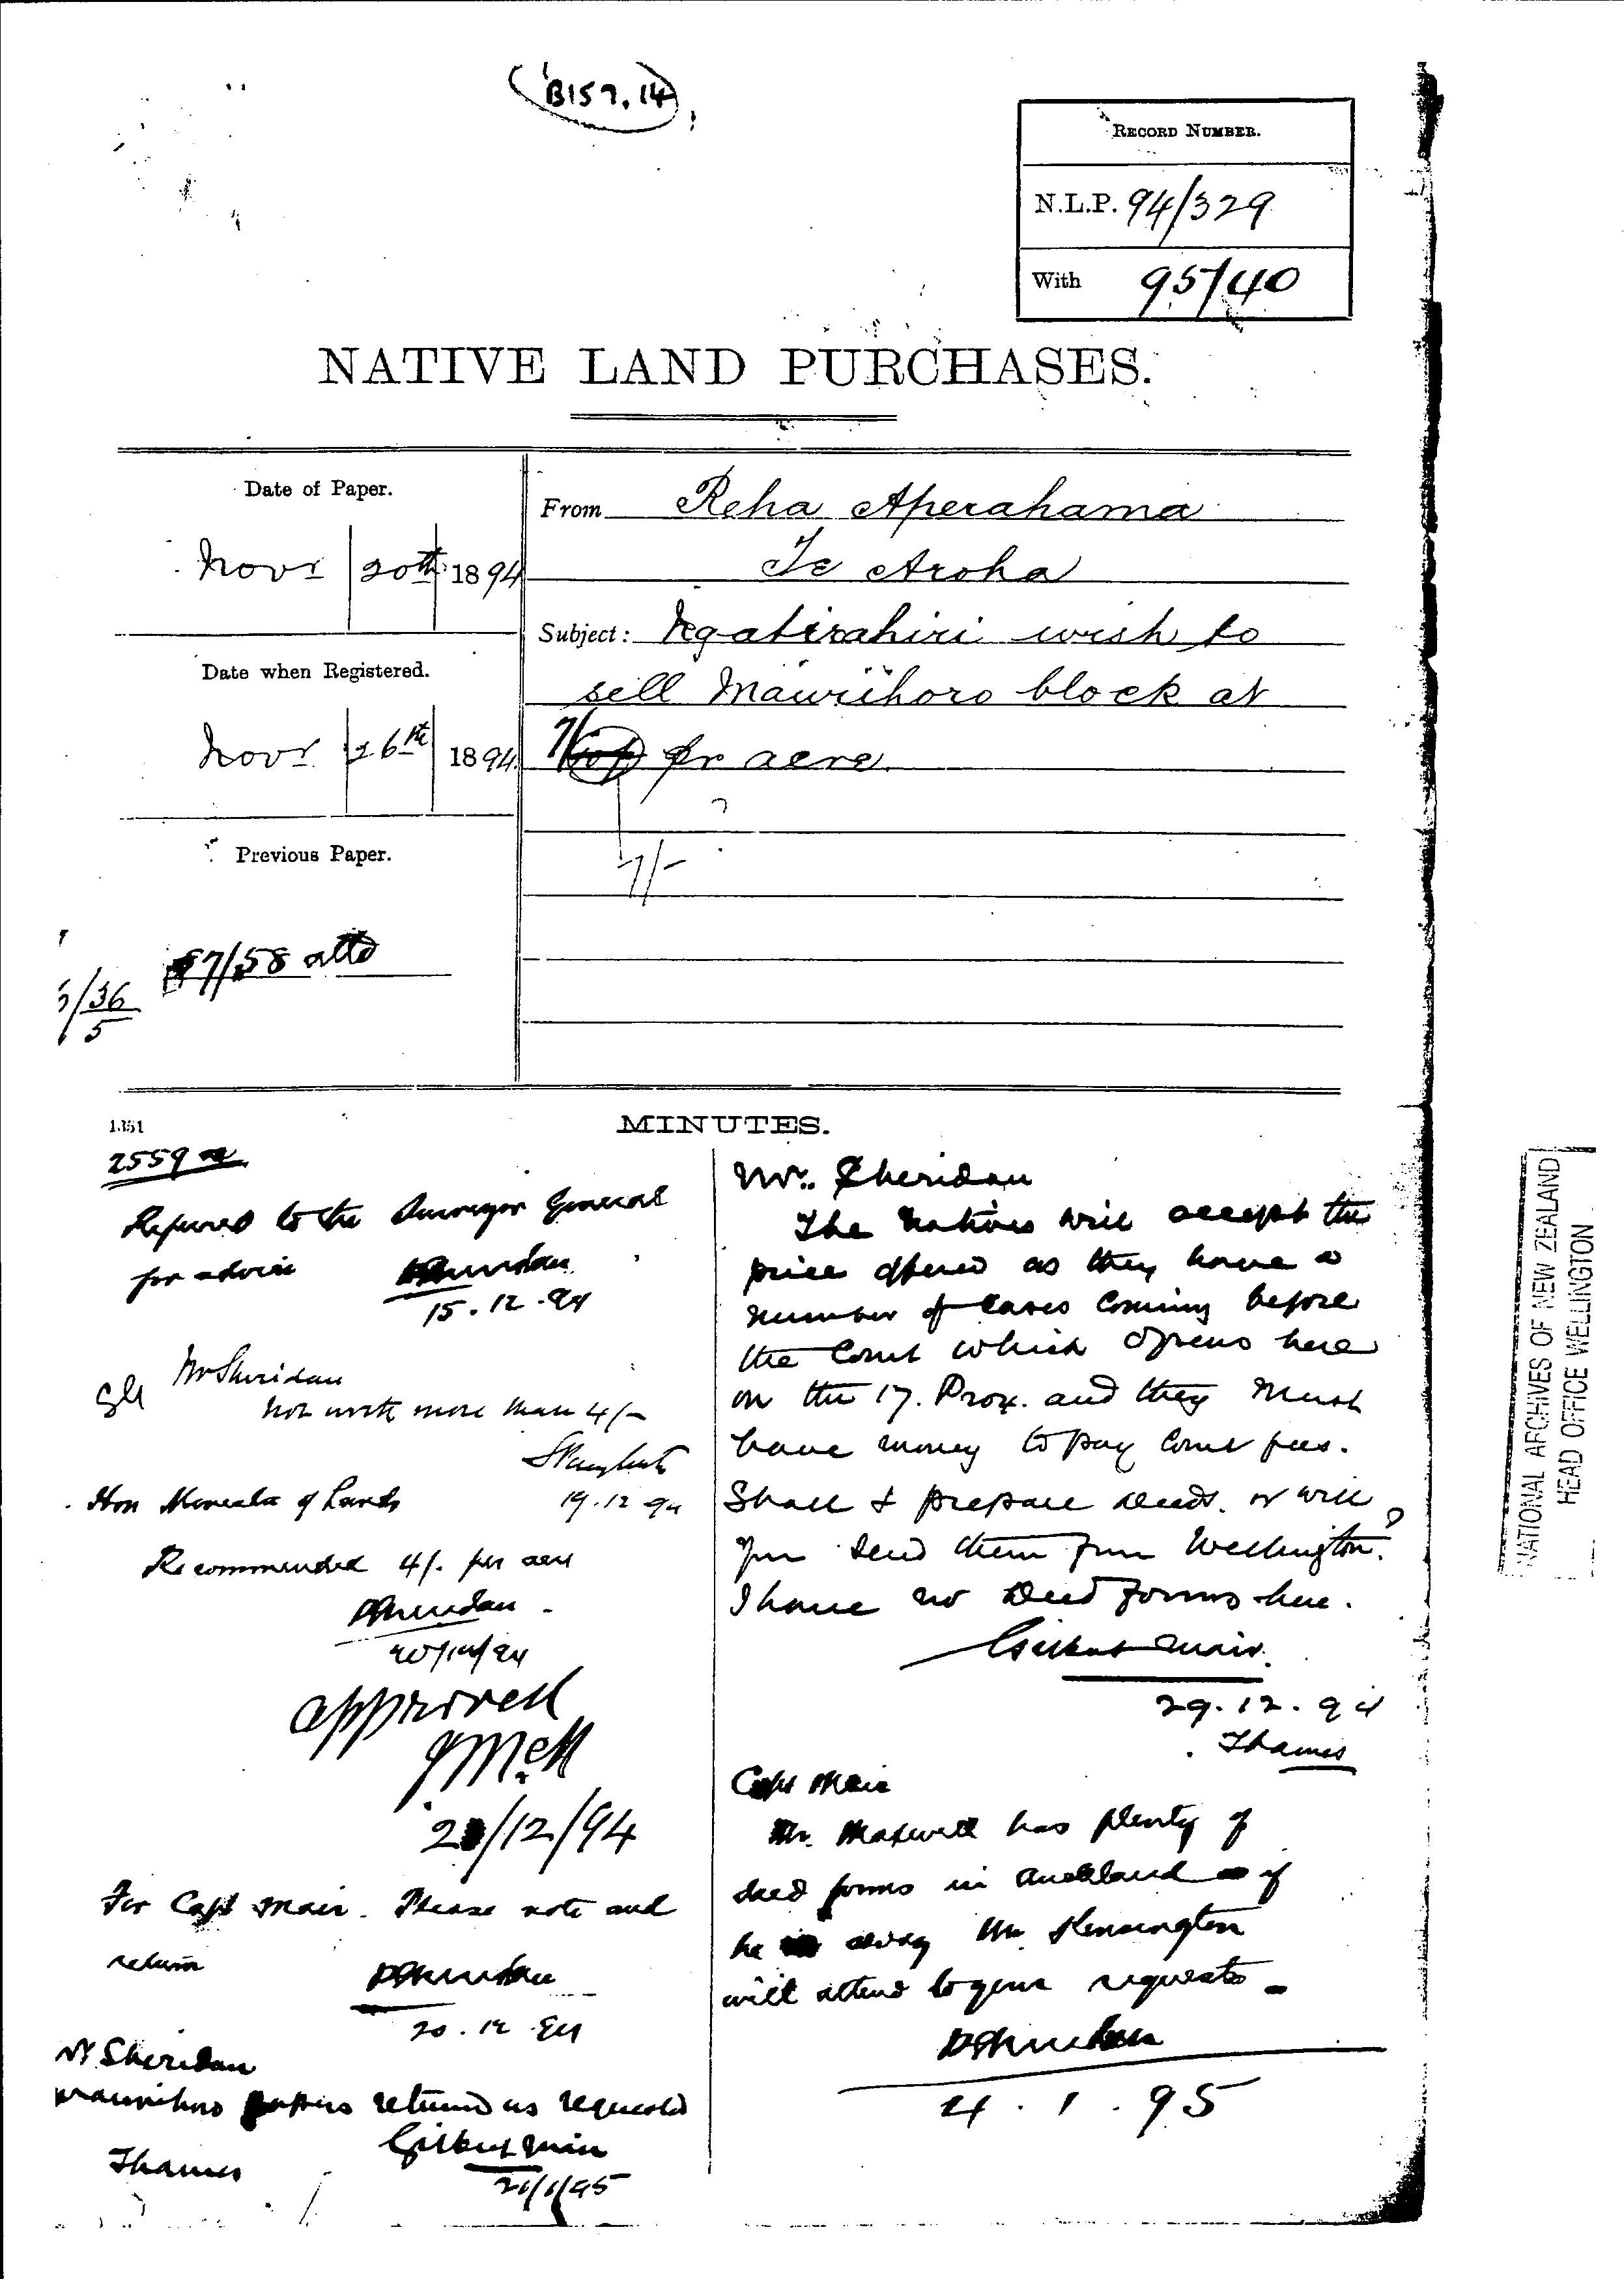 (B159.14)
RECORD NUMBER.
N.L.P. 94/329
With 95/40
NATIVE LAND PURCHASES.
Date of Paper.
Novr 20th 1894
Date when Registered.
Novr 26th 1894
Previous Paper.
87/58 attd
/36
5
From Reha Aperahama
Te Aroha
Subject: Ngatirahiri wish to
sell Mauriihoro block at
7/ pr acre
?
7/-
1351
MINUTES.
2559 ac
Referred to the Surveyor General
for advice
PSheridan
15.12.94
SG
Mr Sheridan
Not worth more than 4/-
19.12.94
Hon Minister of Lands
Recommended 4/- per acre
PSheridan
20/12/94
approved
JMcK
/12/94
For Capt Mair. Please note and
return
PSheridan
20.12.94
Mr Sheridan
Maurihoro papers returned as requested
Gilbert Mair
Thames
21/1/95
Mr. Sheridan
The Natives will accept the
price offered as they have a
number of cases coming before
the Court which opens here
on the 17. Prox. and they must
have money to pay Court fees.
Shall I prepare deeds. or will
you send them from Wellington?
I have no Deed forms here.
Gilbert Mair.
29.12.94
Thames
Capt Mair
Mr. Maxwell has plenty of
deed forms in Auckland if
he away Mr. Kensington
will attend to your requests -
PSheridan
4.1.95
NATIONAL ARCHIVES OF NEW ZEALAND
HEAD OFFICE WELLINGTON